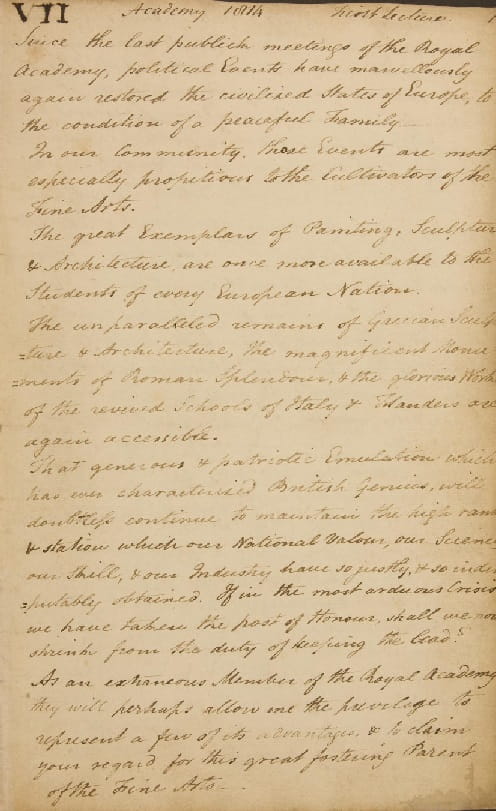 VII Academy 1814 First Lecture. 1
Since the last publick meetings of the Royal
Academy, political Events have marvellously
again restored the civilized States of Europe, to
the condition of a peaceful Family—
In our Community, those Events are most
especially propitious to the Cultivators of the
Fine Arts.
The great Exemplars of Painting, Sculptur
& Architecture, are once more available to the
Students of every European Nation.
The unparalleled remains of Grecian Sculp
=ture & Architecture, the magnificent Monu
=ments of Roman Splendour, & the glorious Works
of the revived Schools of Italy & Flanders are
again accessible.
That generous & patriotic Emulation which
has ever characterised British Genius, will
doubtless continue to maintain the high rank
& station which our National Valour, our Science
our Skill, & our Industry have so justly, & so indis
=putably obtained. If in the most arduous Crisis
we have taken the post of Honour, shall we now
shrink from the duty of keeping the lead?
As an extraneous Member of the Royal Academy
they will perhaps allow me the privilege to
represent a few of its advantages, & to claim
your regard for this great fostering Parent
of the Fine Arts—